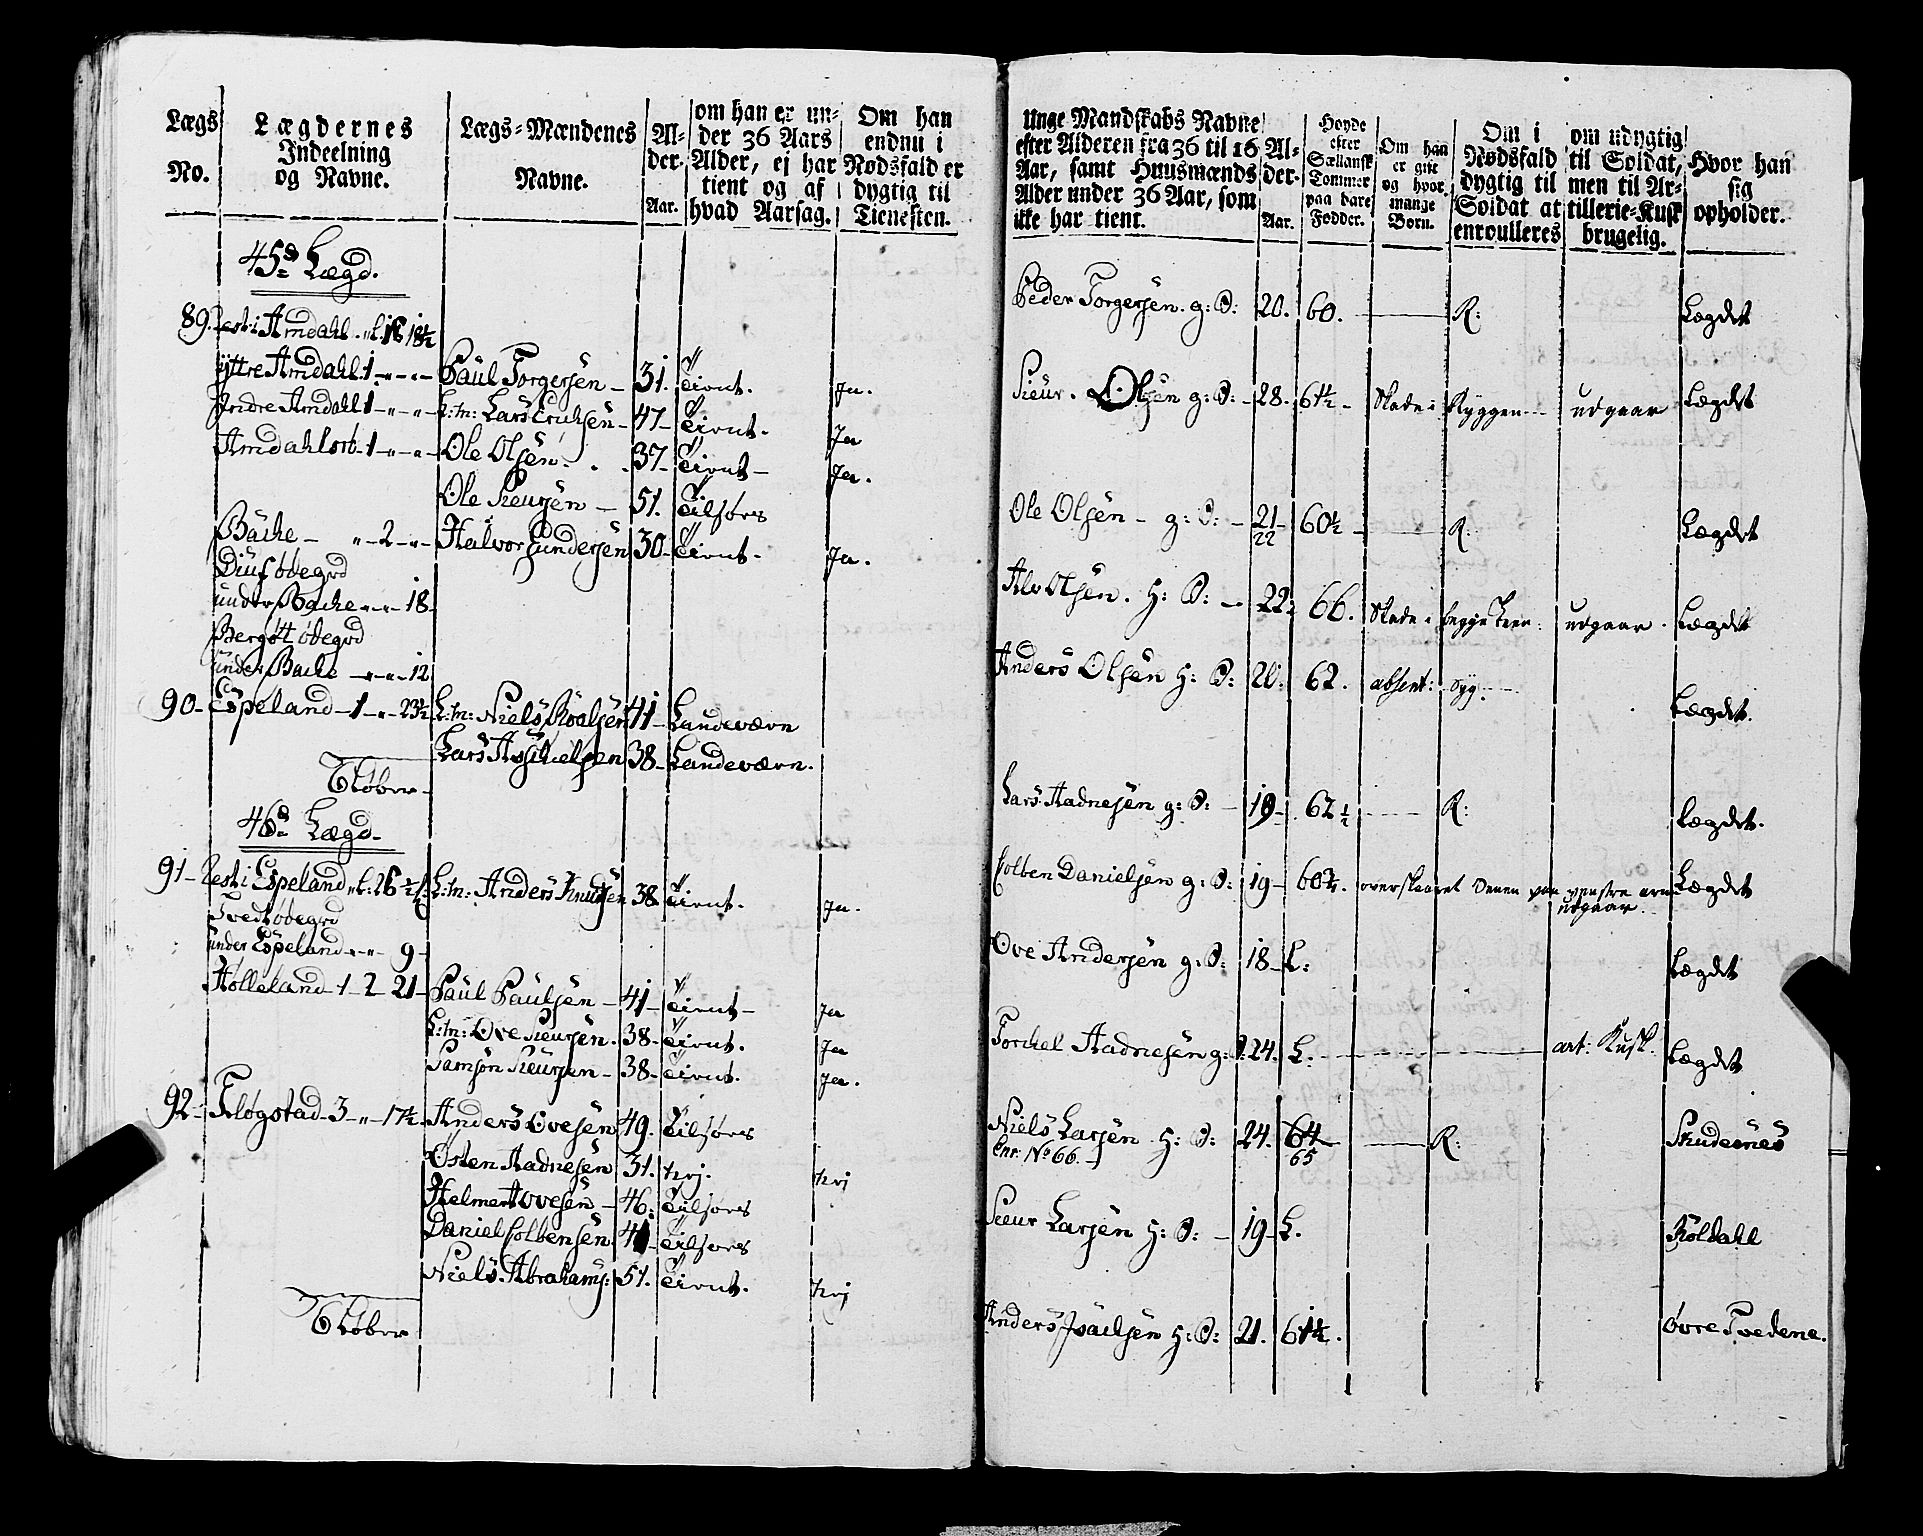 Lægs No.
Lægdernes Indeelning og Navne.
Lægs-Mændenes Navne.
Alder. Aar.
om han er under 36 Aars Alder, ej har tient og af hvad Aarsag.
Om han endnu i Nødsfald er dygtig til Tienesten.
45d Lægd.
89. Rest i Amdahl
Yttre Amdahl 1 - Paul Torgersen - 31. Tient. Ja.
Indre Amdahl 1 - L:m: Lars Erichsen - 47 - Tient. Ja
Amdahl 1 - Ole Olsen. 37 - Tient - Ja.
Ole Sieursen - 51. Tilføres
Bache - 2 - Halvor Gundersen 30 - Tient - Ja.
Ødegrd
under Bache 18
Bergött ødegrd
under Bache 12
90 - Espeland - 1 - 23½ L:m: Niels Roalsen 41 - Landeværn
Lars 38 - Landeværn.
46d Lægd.
91 - Rest i Espeland L:m: Anders Knudsen 38 Tient. Ja.
Tvedt ødegrd
under Espeland 9 -
Hölleland - 1 - 2 21 - Paul Paulsen - 41 - Tient - Ja
L:m: Ove Sieursen. 38 - Tient. Ja
Samson Sieursen - 38 - Tient. Ja.
92 - Fløgstad - 3 - 17½ Anders Ovesen 49. Tilføres
Østen Aadnesen 31. Nej. Nej
Helmer Ovesen - 46. Tilføres
Daniel Colbensen Tilføres
Niels Abrahams: 51. Tient. Nej
Unge Mandskabs Navne efter Alderen fra 36 til 16 Aar, samt Huusmænds Alder under 36 Aar, som ikke har tient.
Alder. Aar.
Høyde efter Siellansk Tommer paa bare Fødder.
Om han er gift og hvor mange Børn.
Om i Nødsfald dygtig til Soldat at enroulleres
om udygtig til Soldat, men til Artillerie-Kusk brugelig.
Hvor han sig opholder.
Peder Torgersen. g: S: 20. 60. R: Lægdet
Sieur. Olsen g: S: - 28. 61½ - Skade i Ryggen - udgaar Lægdet
Ole Olsen - g: S: - 21 - 60½ - R: Lægdet
22
Alv Olsen. H: S: - 22 66. Skade i begge udgaar. Lægdet
Anders Olsen H: S: 20: 62. absent: syg. Lægdet.
Lars Aadnesen g: S: - 19 - 62½ R: Lægdet.
Colben Danielsen g: S: 19 - 60½. overskaaret Senen paa venstre arm Lægdet
udgaar
Ove Andersen g: S: 18 - L: Lægdet
Torchel Aadnesen g: S: 24. L. art: Kusk. Lægdet
Niels Larsen H: S: 24. 64 R: Skudesnes
Enr: No 66. 65
Sieur Larsen H: S: - 19 - L. Röldahl
Anders H: S: 21. 61½. Øvre Tvedene.